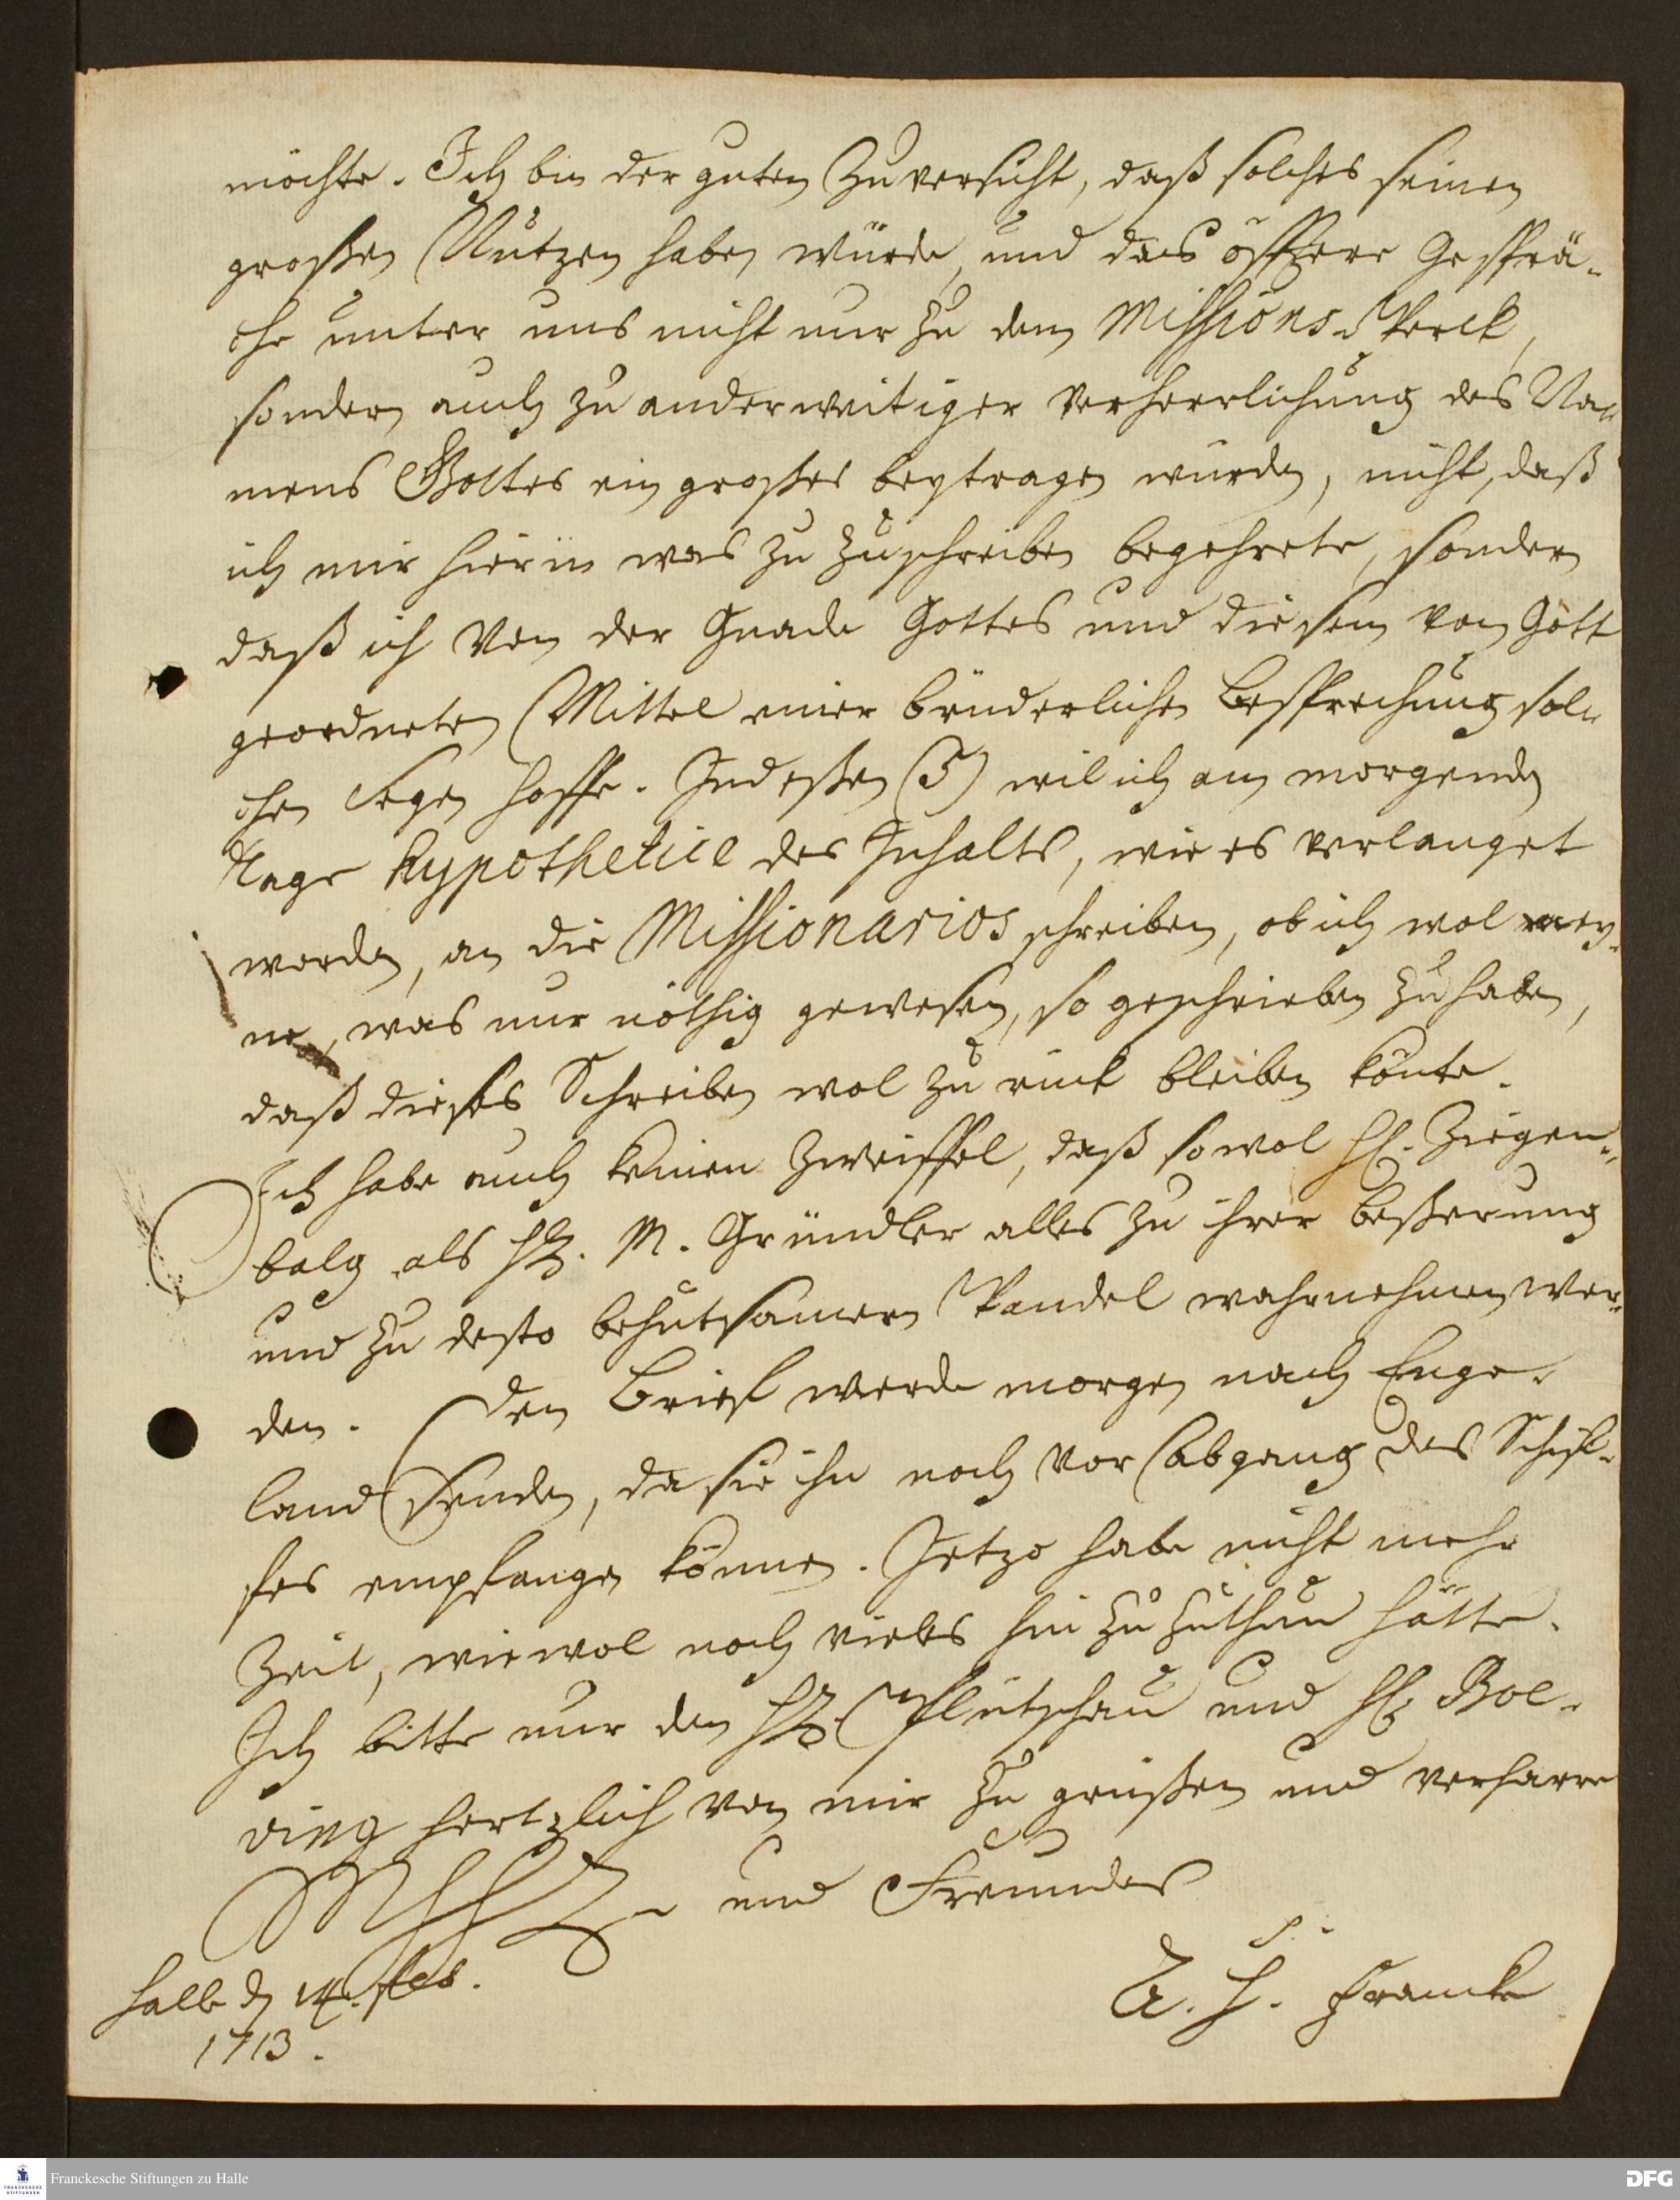 möchte. Ich bin der guten Zuversicht, daß solches seinen
großen Nutzen haben würde, und das öfftere Gesprä-
che unter uns nicht nur zu dem Missions-Werck,
sondern auch zu anderweitiger Verherrlichung des Na-
mens Gottes ein großes beytragen würden, nicht, daß
ich mir hierin was zu zuschreiben begehrete, sondern
daß ich von der Gnade Gottes und diesem von Gott
geordneten Mittel einer brüderlichen Besprechung sol-
chen Segen hoffe. Indeßen (3) wil ich am morgenden
Tage hypothetice des Inhalts, wie es verlanget
worden, an die Missionarios schreiben, ob ich wol mey-
ne, was nur nöthig gewesen, so geschrieben zu haben,
daß dieses Schreiben wol zu rück bleiben könte.
Ich habe auch keinen Zweiffel, daß so wol H. Ziegen-
balg als H. M. Gründler alles zu ihrer Beßerung
und zu desto behutsamern Wandel wahrnehmen wer-
den. Den Brief werde morgen nach Enge-
land senden, da sie ihn noch vor Abgang des Schif-
fes empfangen können. Jetzo habe nicht mehr
Zeit, wiewol noch vieles hin zu zuthun hätte.
Ich bitte nur den H. Plütschau und H. Boe-
ving hertzlich von mir zu grüßen und verharre
und Freundes
Halle d. 14. Feb.
A. H. Francke
1713.
Franckesche Stiftungen zu Halle
FRANCKESCHE STIFTUNGEN
DFG